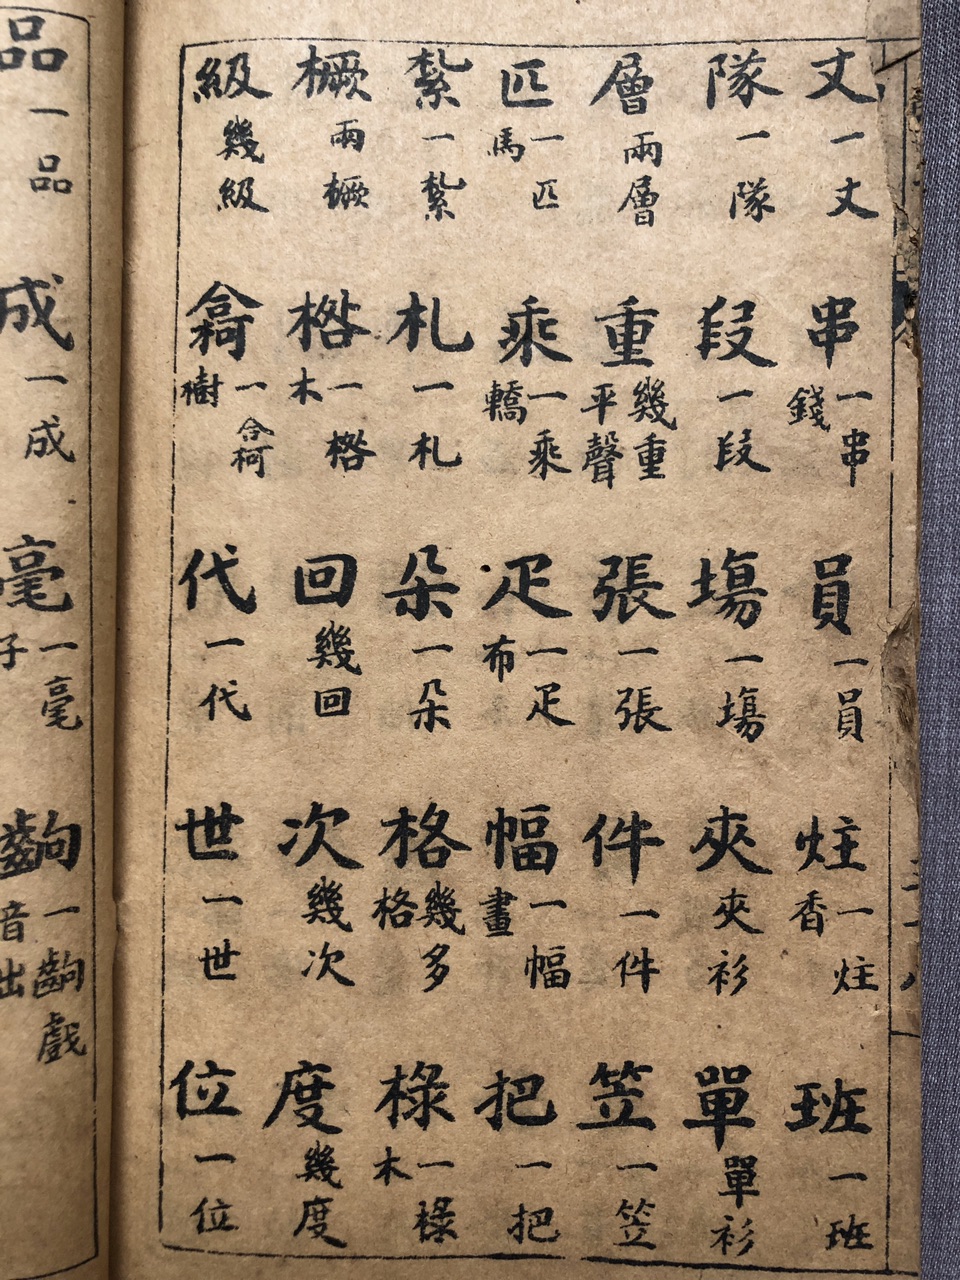 丈 一丈 串 一串錢 員 一員 炷 一炷香 班 一班
隊 一隊 段 一段 塲 一塲 夾 夾衫 單 單衫
層 兩層 重 幾重平聲 張 一張 件 一件 笠 一笠
匹 一匹馬 乘 一乘轎 疋 一疋布 幅 一幅畫 把 一把
紮 一紮 札 一札 朵 一朵 格 幾多格 椂 一椂木
橛 兩橛 一木 回 幾回 次 幾次 度 幾度
級 幾級 一樹 代 一代 世 一世 位 一位
品 一品 成 一成 毫 一毫子 齣 一齣戲音出